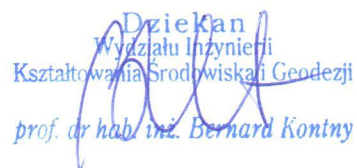 Dziekan
Wydziału Inżynierii
Kształtowania Środowiska i Geodezji
prof. dr hab. inż. Bernard Kontny